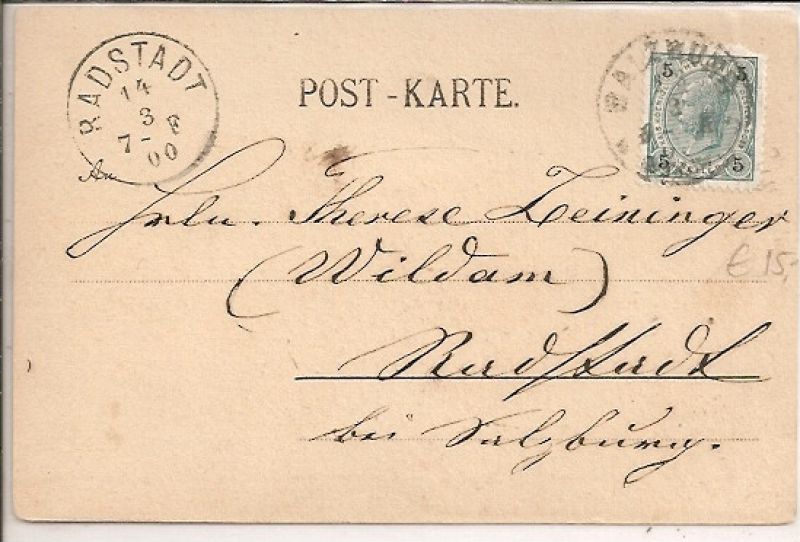 RADSTADT
14
3
7-F
00
POST-KARTE.
SALZBURG
5 5
5 5
An
Frln. Therese Zeininger
(Wildam)
€ 15,-
Radstadt
bei Salzburg.